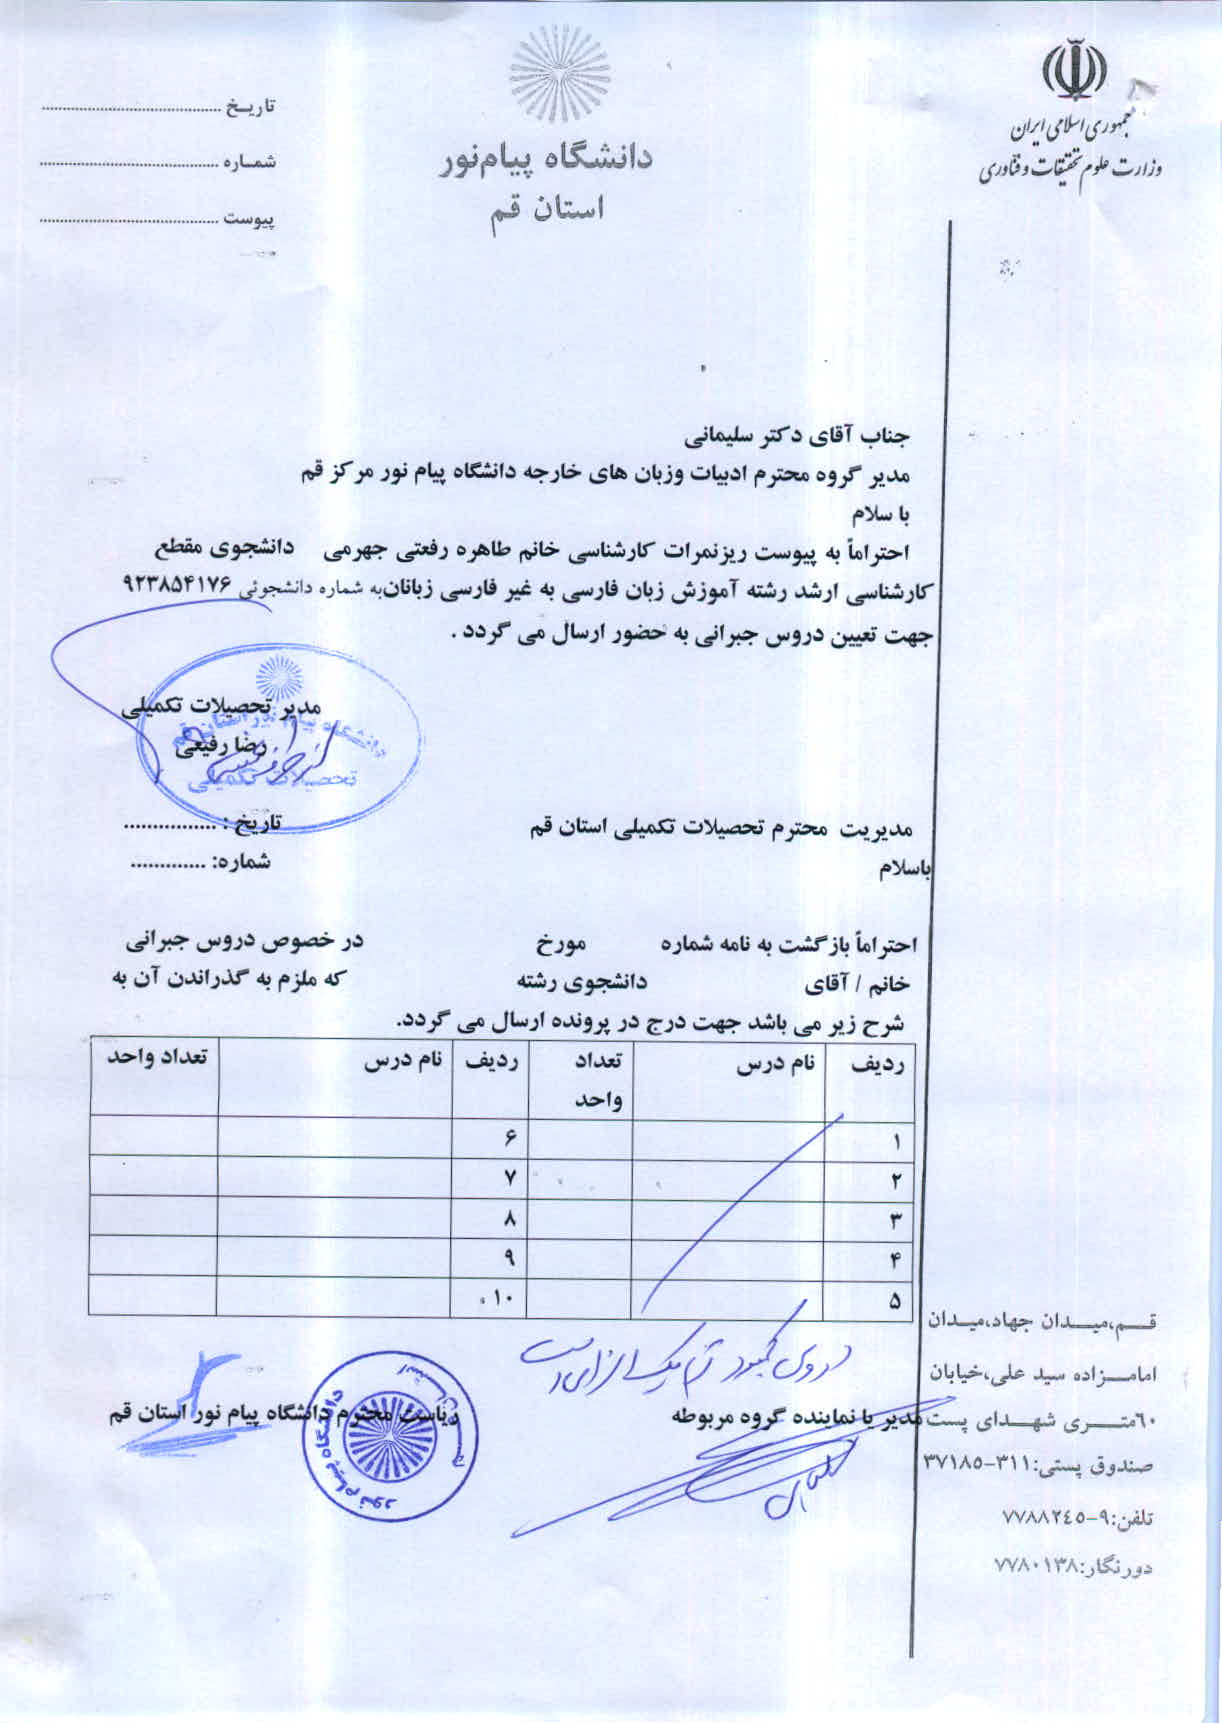 جمهوری اسلامی ایران
وزارت علوم تحقیقات و فناوری
دانشگاه پیام‌نور
استان قم
تاریـخ ............................................
شمـاره ............................................
پیوست ............................................
جناب آقای دکتر سلیمانی
مدیر گروه محترم ادبیات وزبان های خارجه دانشگاه پیام نور مرکز قم
با سلام
احتراماً به پیوست ریزنمرات کارشناسی خانم طاهره رفعتی جهرمی دانشجوی مقطع
کارشناسی ارشد رشته آموزش زبان فارسی به غیر فارسی زبانان‌به شماره دانشجوئی ۹۲۳۸۵۴۱۷۶
جهت تعیین دروس جبرانی به حضور ارسال می گردد .
مدیر تحصیلات تکمیلی
رضا رفیعی
دانشگاه پیام نور استان قم
تحصیلات تکمیلی
مدیریت محترم تحصیلات تکمیلی استان قم
تاریخ : ................
باسلام
شماره: .............
احتراماً بازگشت به نامه شماره مورخ در خصوص دروس جبرانی
خانم / آقای دانشجوی رشته که ملزم به گذراندن آن به
شرح زیر می باشد جهت درج در پرونده ارسال می گردد.
ردیف نام درس تعداد واحد ردیف نام درس تعداد واحد
۱ ۶
۲ ۷
۳ ۸
۴ ۹
۵ ۱۰
دروس کمبود
مدیر یا نماینده گروه مربوطه
ریاست محترم دانشگاه پیام نور استان قم
دانشگاه پیام نور
قـــم،میـــدان جهاد،میـدان
امامـــزاده سید علی،خیابان
٦٠متـــری شهـــدای پست
صندوق پستی:۳۱۱-۳۷۱۸۵
تلفن:۹-۷۷۸۸۲٤٥
دورنگار:۷۷۸۰۱۳۸